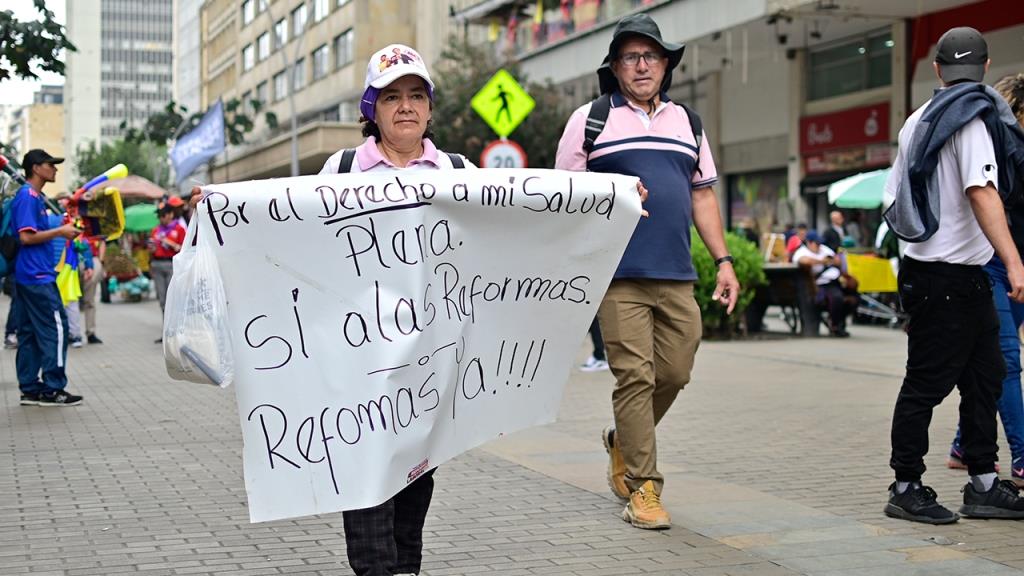 Por el Derecho a mi Salud
Plena.
SI a las Reformas.
Refomas Ya!!!!
20